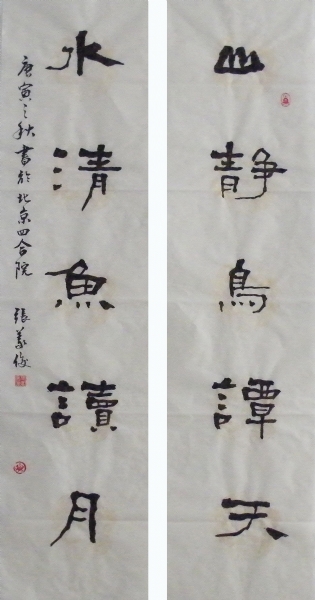 山靜鳥譚天
水清魚讀月
庚寅之秋書於北京四合院 張